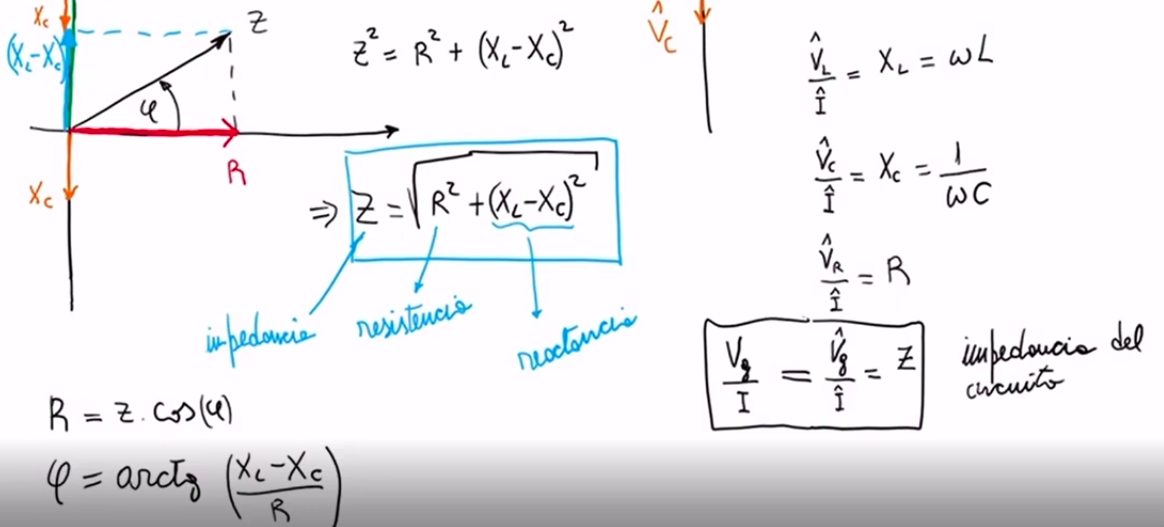 X_C
(X_L-X_C)
Z
φ
R
X_C
Z² = R² + (X_L-X_C)²
⇒ Z = √(R² + (X_L-X_C)²)
impedancia
resistencia
reactancia
R = Z · cos(φ)
φ = arctg ((X_L-X_C)/R)
V̂_C
V̂_L/Î = X_L = ωL
V̂_C/Î = X_C = 1/(ωC)
V̂_R/Î = R
V_g/I = V̂_g/Î = Z
impedancia del
circuito